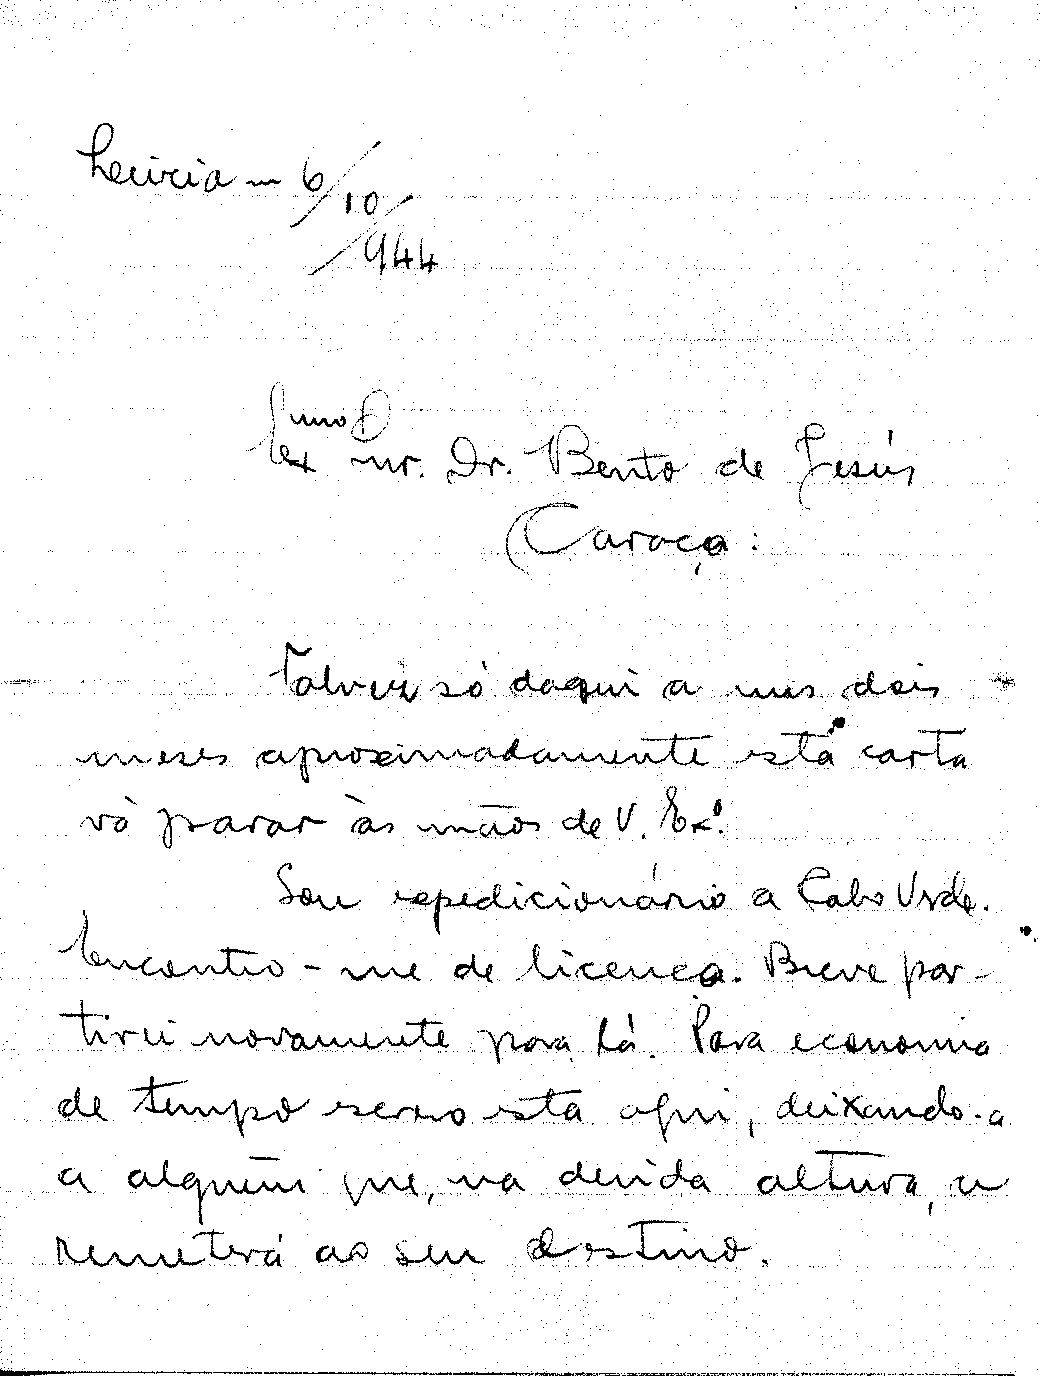 Leiria — 6/10/944
Exmo Snr. Dr. Bento de Jesús
Caraça:
Talvez só daqui a uns dois
meses aproximadamente esta carta
vá parar às mãos de V. Exª.
Sou expedicionário a Cabo Verde.
Encontro-me de licença. Breve par-
tirei novamente para lá. Para economia
de tempo escrevo esta aqui, deixando-a
a alguém que, na devida altura, a
remeterá ao seu destino.